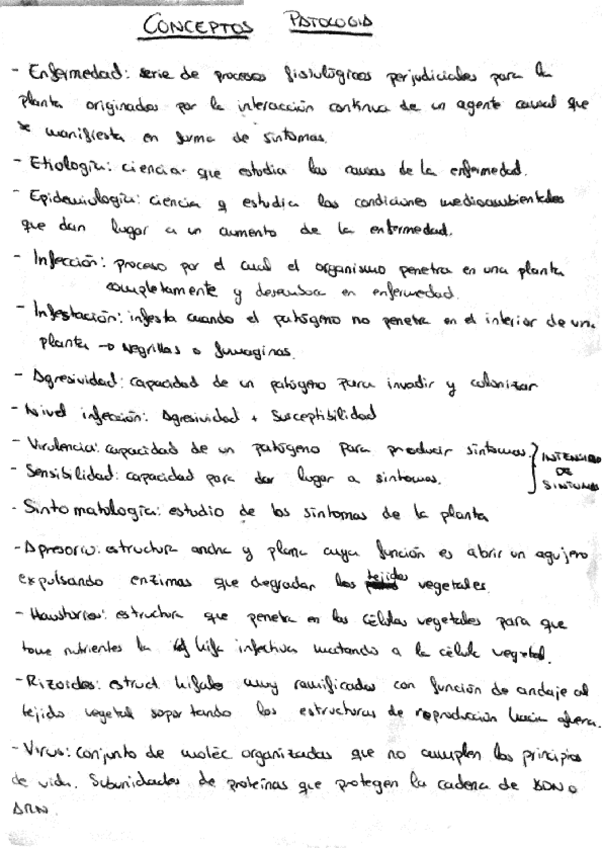 CONCEPTOS PATOLOGIA
- Enfermedad: serie de procesos fisiológicos perjudiciales para la
planta originados por la interacción continua de un agente causal que
se manifiesta en forma de síntomas.
- Etiología: ciencia que estudia las causas de la enfermedad.
- Epidemiología: ciencia q estudia las condiciones medioambientales
que dan lugar a un aumento de la enfermedad.
- Infección: proceso por el cual el organismo penetra en una planta
completamente y desemboca en enfermedad.
- Infestación: infesta cuando el patógeno no penetra en el interior de una
planta → Negrillas o fumaginas.
- Agresividad: capacidad de un patógeno para invadir y colonizar
- Nivel infección: Agresividad + Susceptibilidad
- Virulencia: capacidad de un patógeno para producir síntomas.
- Sensibilidad: capacidad para dar lugar a síntomas.
INTENSIDAD
DE
SÍNTOMAS
- Sintomatología: estudio de los síntomas de la planta
- Apresorio: estructura ancha y plana cuya función es abrir un agujero
expulsando enzimas que degradan los tejidos vegetales.
- Haustorios: estructura que penetra en las células vegetales para que
tome nutrientes la hifa infectiva matando a la célula vegetal.
- Rizoides: estruct hifales muy ramificadas con función de anclaje al
tejido vegetal soportando las estructuras de reproducción hacia afuera.
- Virus: conjunto de moléc organizadas que no cumplen los principios
de vida. Subunidades de proteínas que protegen la cadena de ADN o
ARN.